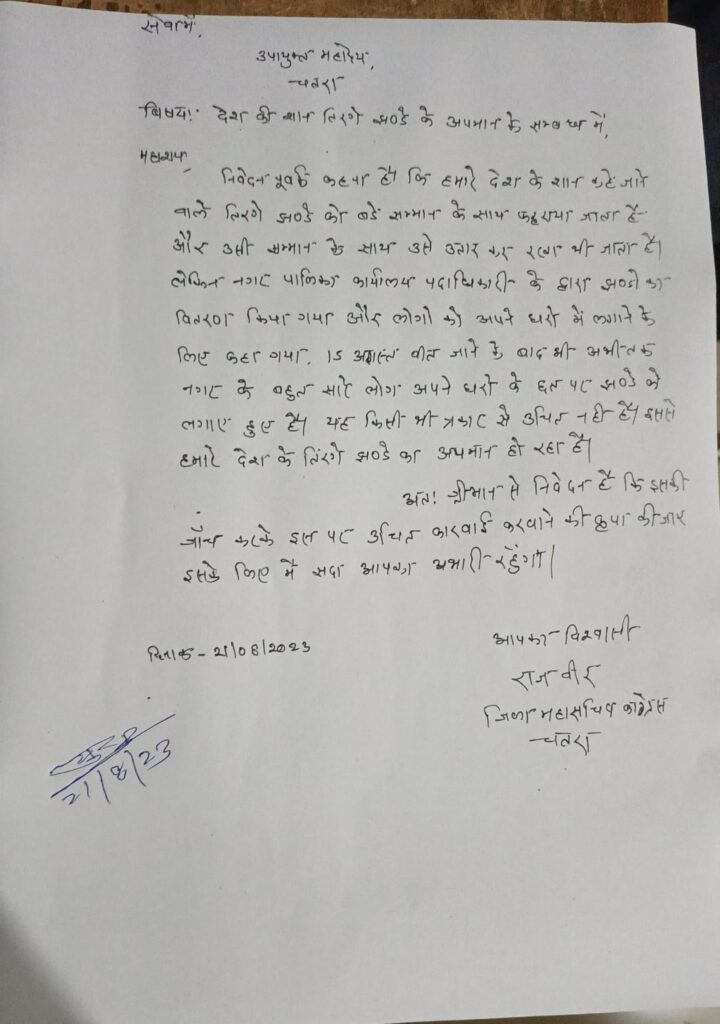 सेवा में,
उपायुक्त महोदय,
चतरा
विषय: देश की शान तिरंगे झण्डे के अपमान के सम्बन्ध में,
महाशय,
निवेदन पूर्वक कहना है। कि हमारे देश के शान कहे जाने
वाले तिरंगे झण्डे को बडे सम्मान के साथ फहराया जाता है
और उसी सम्मान के साथ उसे उतार कर रखा भी जाता है।
लेकिन नगर पालिका कार्यालय पदाधिकारी के द्वारा झण्डो का
वितरण किया गया और लोगो को अपने घरो में लगाने के
लिए कहा गया. 15 अगस्त बीत जाने के बाद भी अभी तक
नगर के बहुत सारे लोग अपने घरो के छत पर झण्डे को
लगाए हुए है। यह किसी भी प्रकार से उचित नही है। इससे
हमारे देश के तिरंगे झण्डे का अपमान हो रहा है।
अत: श्रीमान से निवेदन है कि इसकी
जाँच करके इस पर उचित कारवाई करवाने की कृपा की जाए
इसके लिए मैं सदा आपका अभारी रहुँगा।
दिनांक - 21/08/2023
आपका विश्वासी
राजवीर
जिला महासचिव कांग्रेस
चतरा
21/8/23